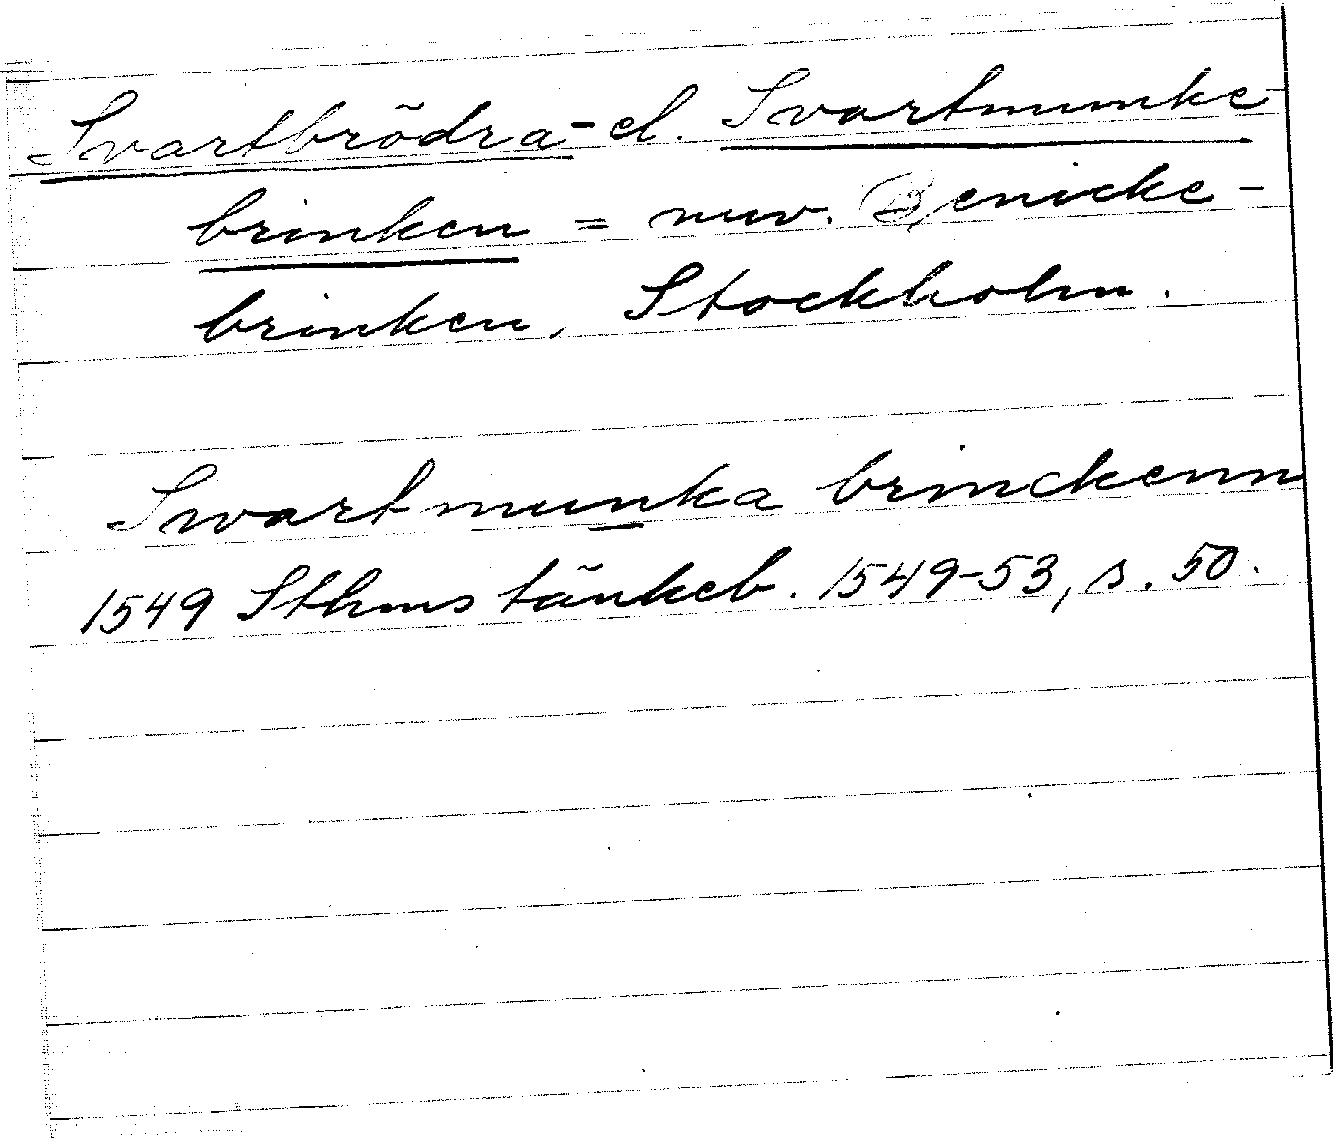 Svartbrödra- el. Svartmunke-
brinken = nuv. Benicke-
brinken, Stockholm.
Swartmunka brinckenn
1549 Sthms tänkeb. 1549-53, s. 50.